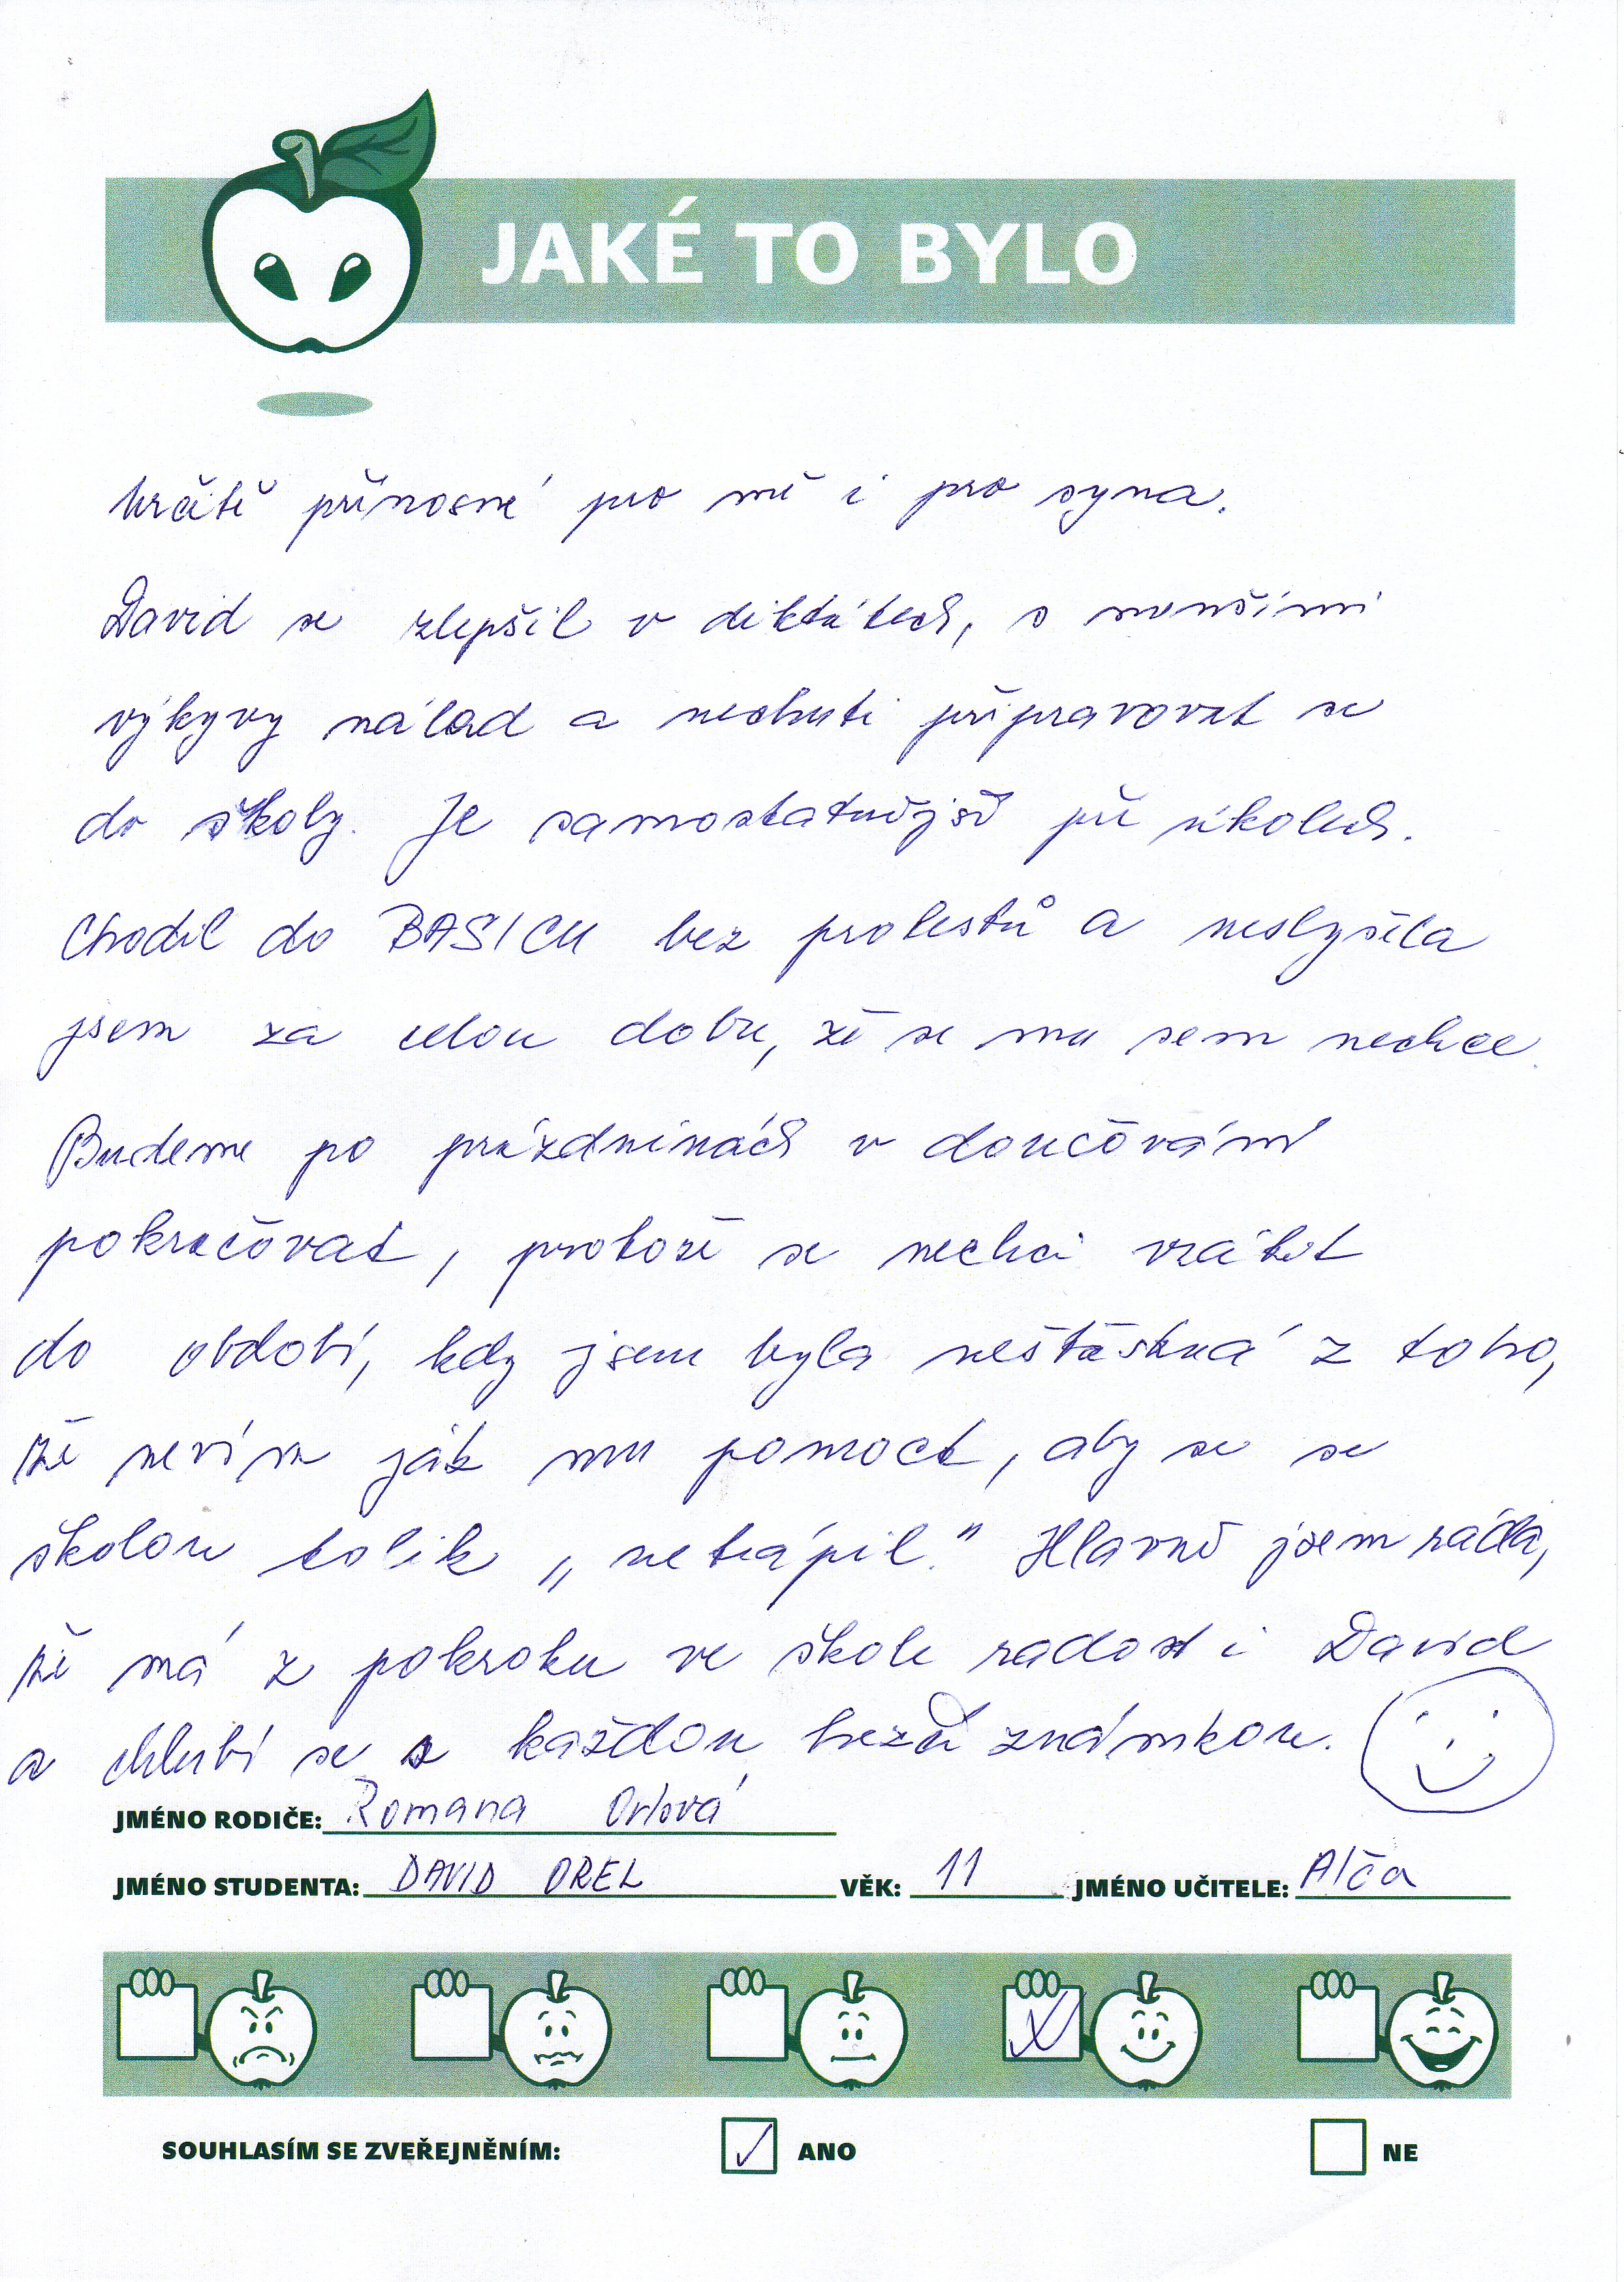 JAKÉ TO BYLO
Určitě přínosné pro mě i pro syna.
David se zlepšil v diktátech, s menšími
výkyvy nálad a nechuti připravovat se
do školy. Je samostatnější při úkolech.
Chodil do BASICU bez protestů a neslyšela
jsem za celou dobu, že se mu sem nechce.
Budeme po prázdninách v doučování
pokračovat, protože se nechci vrátit
do období, kdy jsem byla nešťastná z toho,
že nevím jak mu pomoct, aby se se
školou tolik „netrápil." Hlavně jsem ráda,
že má z pokroku ve škole radost i David
a chlubí se s každou hezčí známkou.
JMÉNO RODIČE: Romana Orlová
JMÉNO STUDENTA: DAVID OREL VĚK: 11 JMÉNO UČITELE: Alča
SOUHLASÍM SE ZVEŘEJNĚNÍM: ANO NE